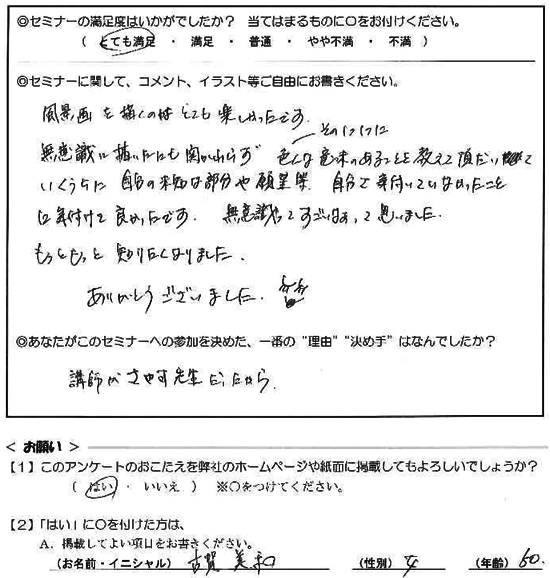 ◎セミナーの満足度はいかがでしたか? 当てはまるものに○をお付けください。
( とても満足 ・ 満足 ・ 普通 ・ やや不満 ・ 不満 )
◎セミナーに関して、コメント、イラスト等ご自由にお書きください。
風景画を描くのはとても楽しかったです。
その1つ1つに
無意識に描いたにも関わらず 色んな意味のあることを教えて頂だい て
いくうちに 自分の未知な部分や願望等 自分で気付いていなかったこと
に気付けて良かったです。 無意識ってすごいなぁって思いました。
もっともっと知りたくなりました。
ありがとうございました。
◎あなたがこのセミナーへの参加を決めた、一番の"理由""決め手"はなんでしたか?
講師がさやす先生だったから。
< お願い >
【1】このアンケートのおこたえを弊社のホームページや紙面に掲載してもよろしいでしょうか?
( はい ・ いいえ ) ※○をつけてください。
【2】「はい」に○を付けた方は、
A. 掲載してよい項目をお書きください。
(お名前・イニシャル) 古賀 美和 (性別) 女 (年齢) 60.